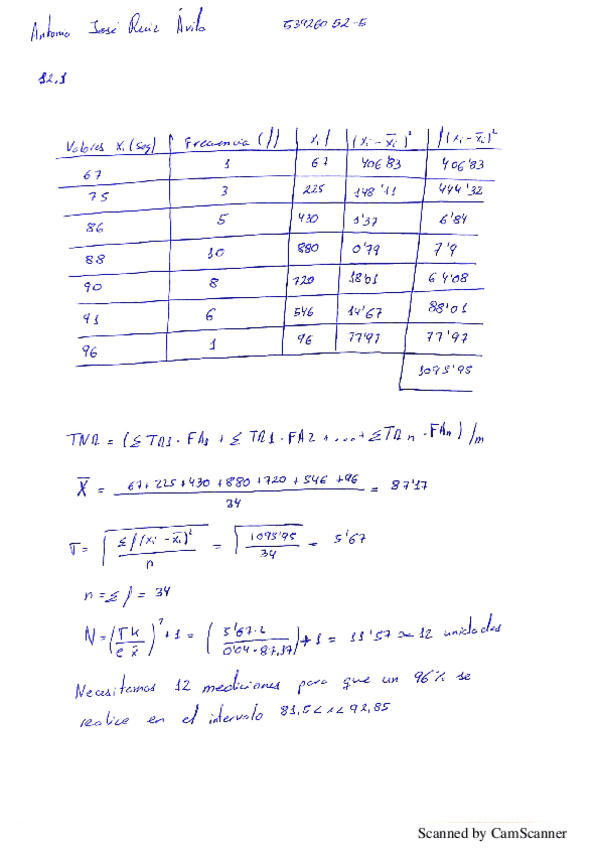 Antonio José Ruiz Ávila 53926052-E
12.1
Valores Xi (seg) Frecuencia (f) xi f (xi - x̄i)² f(xi - x̄i)²
67 1 67 406'83 406'83
75 3 225 148'11 444'32
86 5 430 1'37 6'84
88 10 880 0'79 7'9
90 8 720 18'01 64'08
91 6 546 14'67 88'01
96 1 96 77'97 77'97
1095'95
TNR = (Σ TR1 · FA1 + Σ TR1 · FA2 + ....+ ΣTRn · FAn) /m
X̄ = (67 + 225 + 430 + 880 + 720 + 546 + 96) / 34 = 87'17
T = √(Σf(xi - x̄i)² / n) = √(1095'95 / 34) = 5'67
n = Σf = 34
N = (T k / e x̄)² + 1 = (5'67 · 2 / 0'04 · 87,17) + 1 = 11'57 ≈ 12 unidades
Necesitamos 12 mediciones para que un 96% se
realice en el intervalo 81,5 < x < 92,85
Scanned by CamScanner